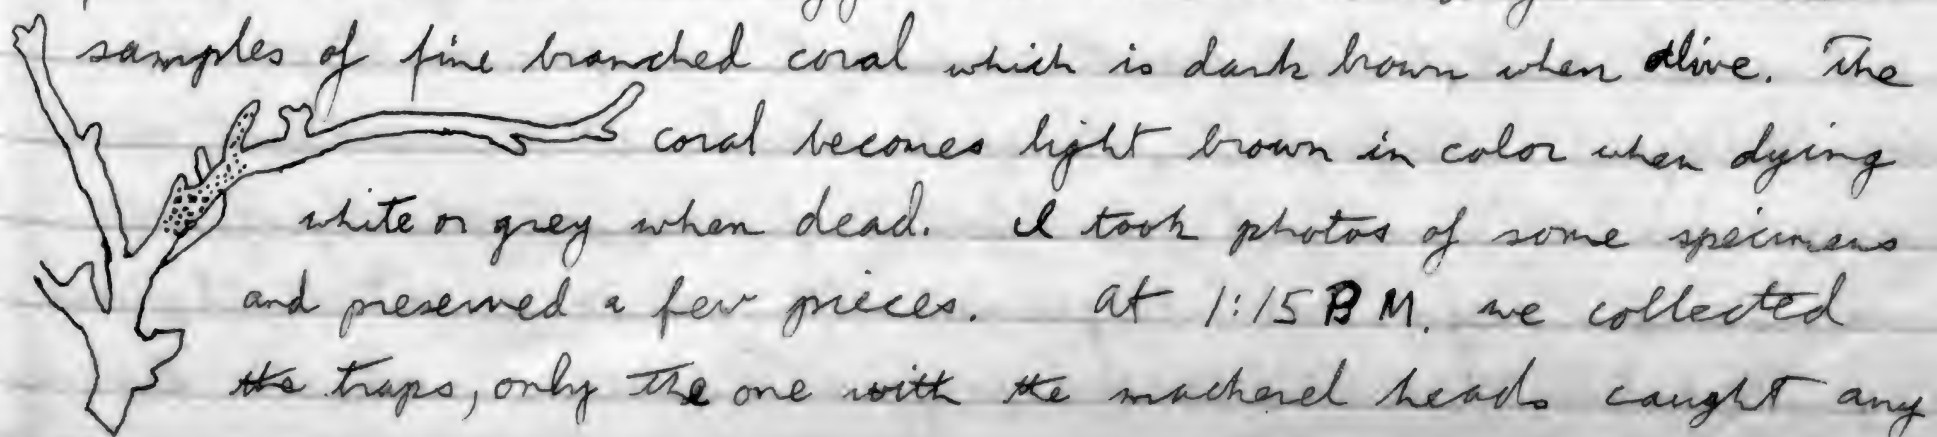 samples of fine branched coral which is dark brown when alive. The
coral becomes light brown in color when dying
white or grey when dead. I took photos of some specimens
and preserved a few pieces. At 1:15 P.M. we collected
the traps, only the one with the mackerel heads caught any